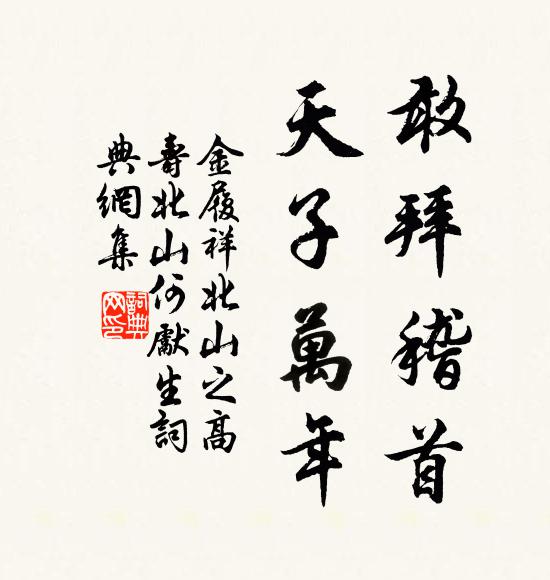 敢拜稽首
天子萬年
金履祥北山之高
壽北山何獻生詞
典網集
詞典
网印